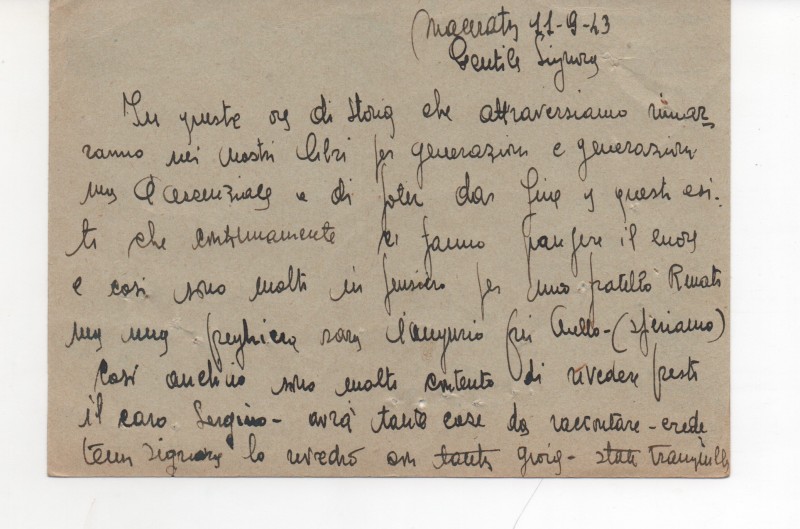 Macerata 11-9-43
Gentile Signora
In queste ore di storia che attraversiamo rimar-
ranno nei nostri libri per generazioni e generazioni
ma l'essenziale e di poter dar fine a questi esi-
ti che continuamente ci fanno piangere il cuore
e così sono molto in pensiero per mio fratello Renato
ma una preghiera sara l'augurio più bello - (speriamo)
Così anch'io sono molto contento di rivedere presto
il caro Sergino - avrà tante cose da raccontare - crede
temi Signora lo rivedrò con tanta gioia - state tranquilla